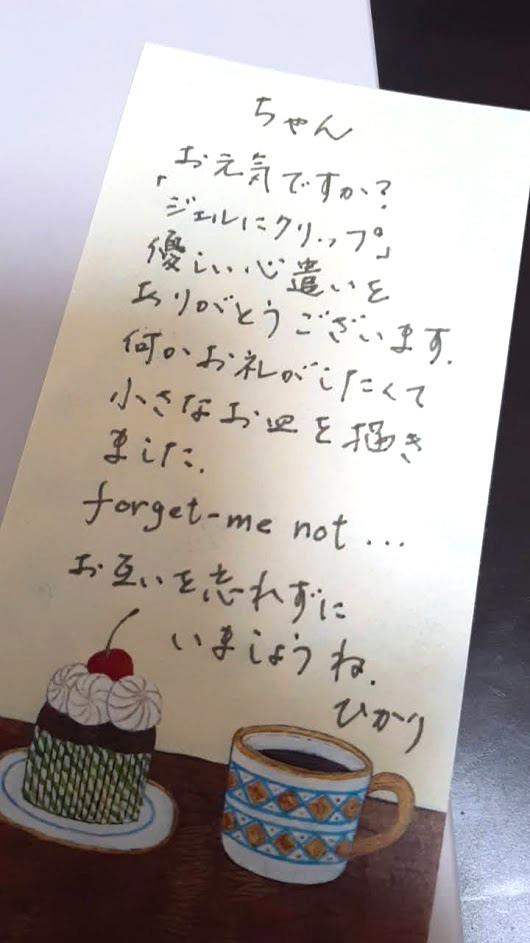 ちゃん
お元気ですか?
「ジェルにクリップ」
優しい心遣いを
ありがとうございます.
何かお礼がしたくて
小さなお皿を描き
ました.
forget-me not ...
お互いを忘れずに
いましょうね.
ひかり